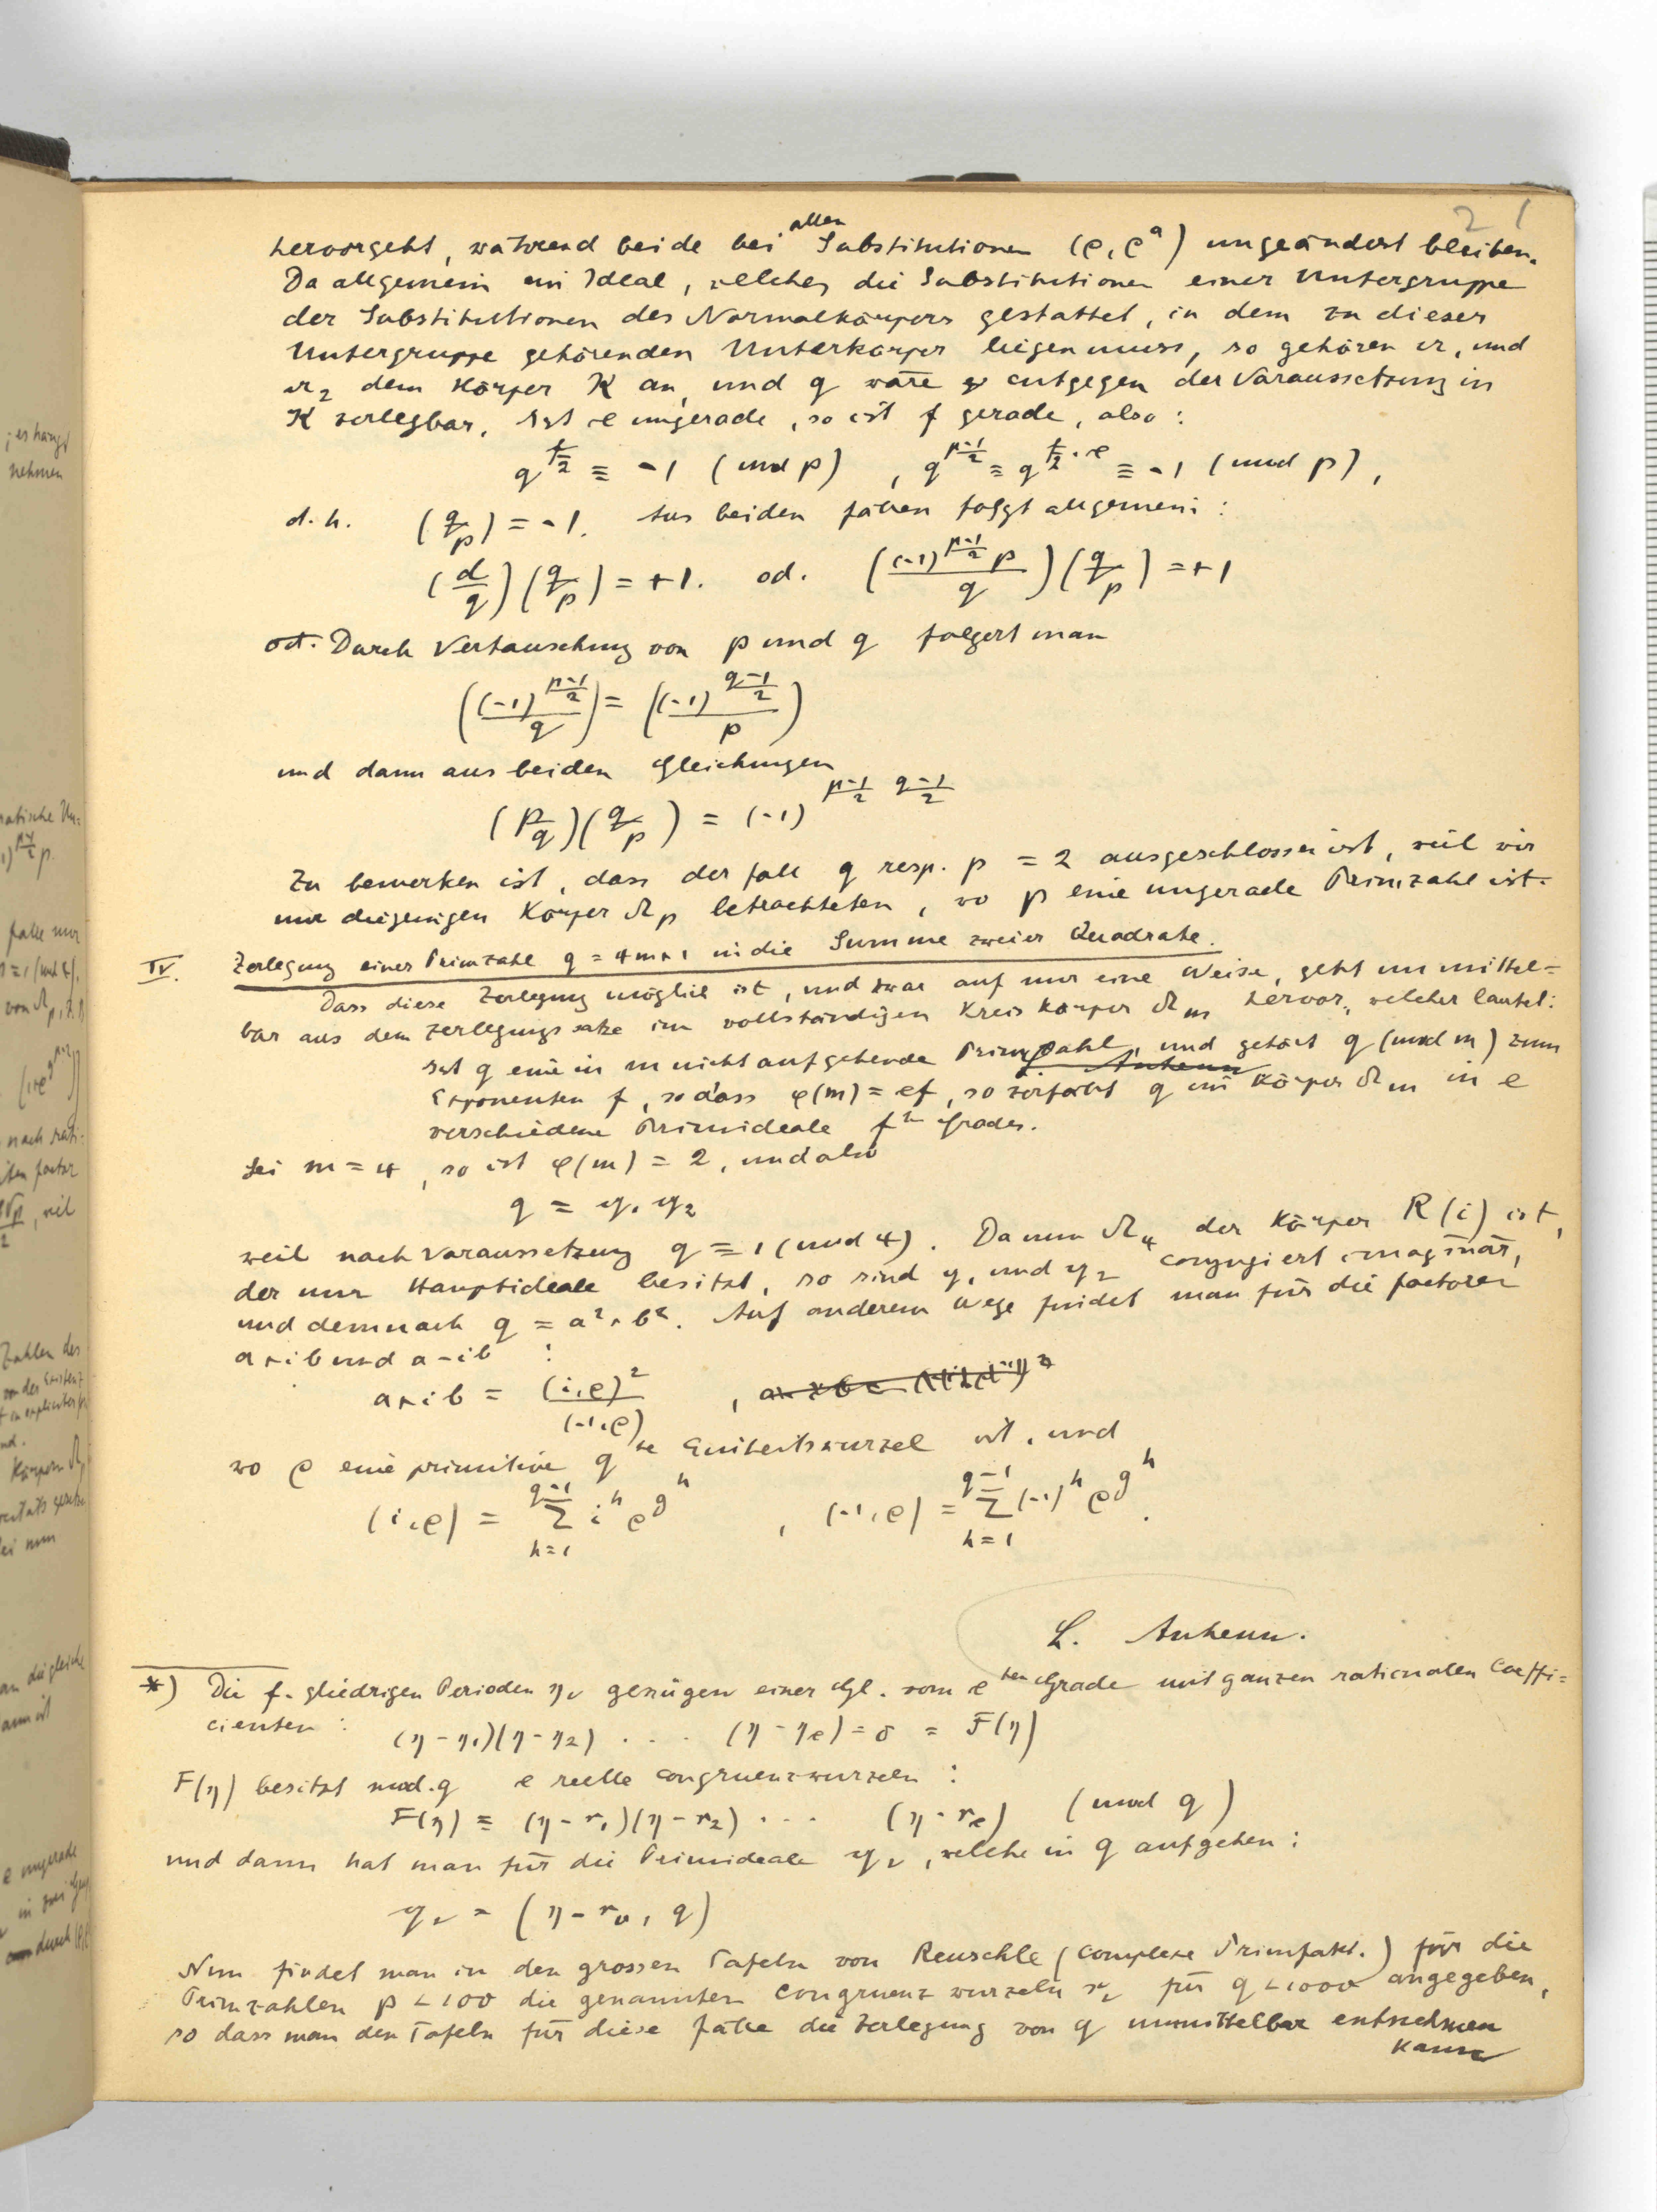 21
hervorgeht, während beide bei allen Substitutionen (ρ, ρ^a) ungeändert bleiben.
Da allgemein ein Ideal, welches die Substitutionen einer Untergruppe
der Substitutionen des Normalkörpers gestattet, in dem zu dieser
Untergruppe gehörenden Unterkörper liegen muss, so gehören 𝔞₁ und
𝔞₂ dem Körper K an, und q wäre entgegen der Voraussetzung in
K zerlegbar. Ist e ungerade, so ist f gerade, also:
q^{f/2} ≡ -1 (mod p) , q^{(p-1)/2} ≡ q^{f/2 · e} ≡ -1 (mod p),
d. h. (q/p) = -1. Aus beiden Fällen folgt allgemein:
(d/q)(q/p) = +1. od. ((-1)^{(p-1)/2} p / q)(q/p) = +1
od. Durch Vertauschung von p und q folgert man
((-1)^{(p-1)/2} / q) = ((-1)^{(q-1)/2} / p)
und dann aus beiden Gleichungen
(p/q)(q/p) = (-1)^{(p-1)/2 (q-1)/2}
Zu bemerken ist, dass der Fall q resp. p = 2 ausgeschlossen ist, weil wir
nur diejenigen Körper Ω_p betrachteten, wo p eine ungerade Primzahl ist.
IV. Zerlegung einer Primzahl q = 4m+1 in die Summe zweier Quadrate.
Dass diese Zerlegung möglich ist, und zwar auf nur eine Weise, geht unmittel=
bar aus dem Zerlegungssatze im vollständigen Kreiskörper Ω_m hervor, welcher lautet:
Ist q eine in m nicht aufgehende Primzahl, und gehört q (mod m) zum
Exponenten f, so dass φ(m) = ef, so zerfällt q im Körper Ω_m in e
verschiedene Primideale f^{ten} Grades.
Sei m = 4, so ist φ(m) = 2, und also
q = 𝔮₁ 𝔮₂
weil nach Voraussetzung q ≡ 1 (mod 4). Da nun Ω₄ der Körper R(i) ist,
der nur Hauptideale besitzt, so sind 𝔮₁ und 𝔮₂ conjugiert imaginär,
und demnach q = a² + b². Auf anderem Wege findet man für die Factoren
a+ib und a-ib :
a+ib = (i,ρ)² / (-1,ρ) ,
wo ρ eine primitive q^{te} Einheitswurzel ist, und
(i,ρ) = Σ_{h=1}^{q-1} i^h ρ^{g^h} , (-1,ρ) = Σ_{h=1}^{q-1} (-1)^h ρ^{g^h}.
L. Anhenn.
*) Die f-gliedrigen Perioden η_ν genügen einer Gl. vom e^{ten} Grade mit ganzen rationalen Coeffi=
cienten :
(η-η₁)(η-η₂) . . . (η-η_e) = 0 = F(η)
F(η) besitzt mod. q e reelle Congruenzwurzeln :
F(η) ≡ (η-r₁)(η-r₂) . . . (η-r_e) (mod q)
und dann hat man für die Primideale 𝔮_ν, welche in q aufgehen :
𝔮_ν = (η-r_ν, q)
Nun findet man in den grossen Tafeln von Reuschle (Complexe Primfakt.) für die
Primzahlen p < 100 die genannten Congruenzwurzeln r_ν für q < 1000 angegeben,
so dass man den Tafeln für diese Fälle die Zerlegung von q unmittelbar entnehmen
kann